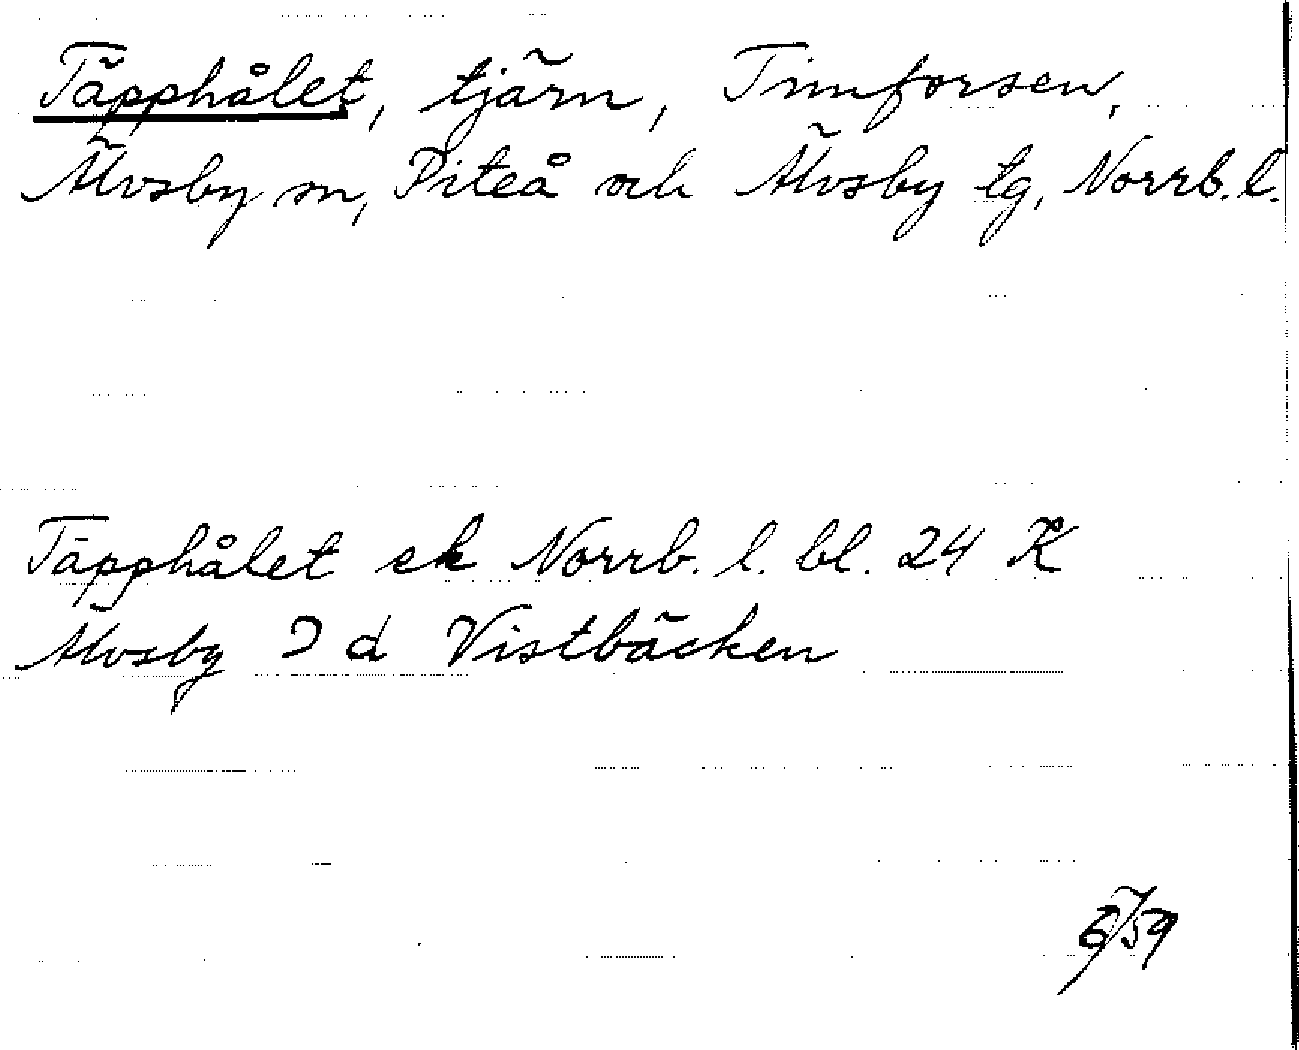 Täpphålet, tjärn, Timforsen,
Älvsby sn, Piteå och Älvsby tg, Norrb. l.
Täpphålet ek Norrb. l. bl. 24 K
Älvsby I d Vistbäcken
6/59